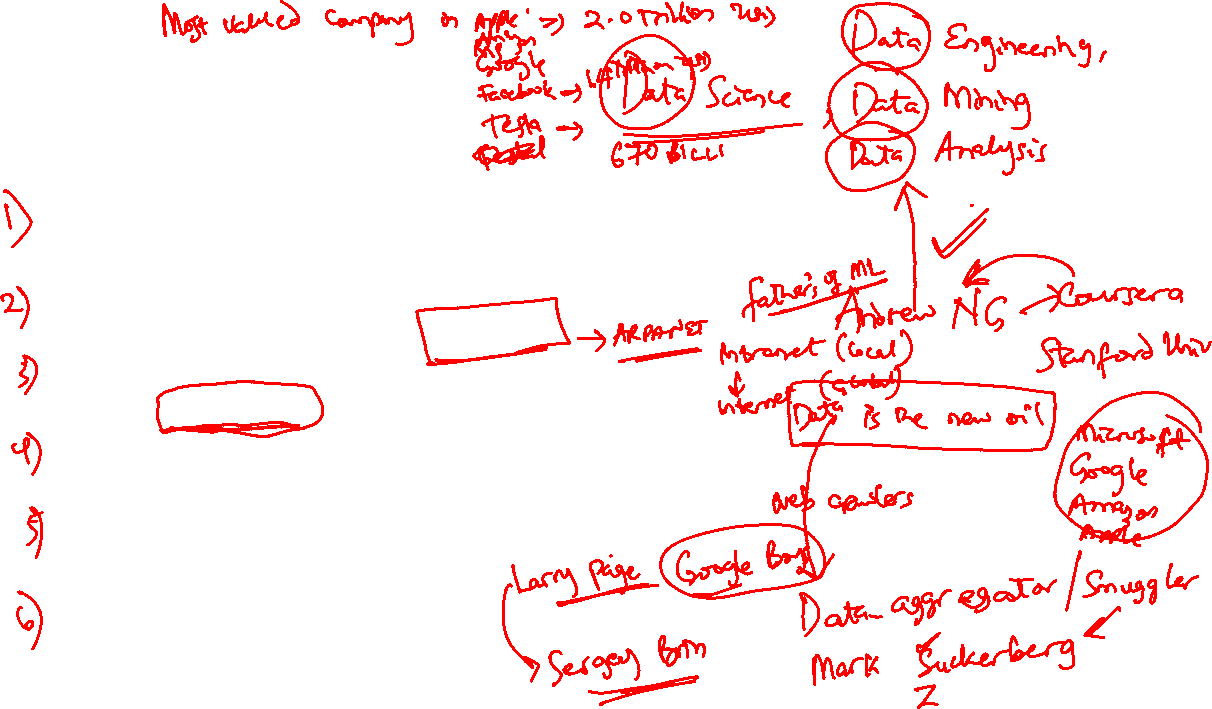 Most valued company in Apple => 2.0 Trillion
Amazon
Google
Facebook → 1.4 Trillion
Tesla → 670 Billi
Data Science
Data Engineering,
Data Mining
Data Analysis
1)
2)
3)
4)
5)
6)
→ ARPANET
father's of ML
Andrew NG → Coursera
Stanford Univ
Intranet (local)
internet (Global)
Data is the new oil
Microsoft
Google
Amazon
Apple
Web crawlers
Larry page
Google Boy
Sergey Brin
Data aggregator / Smuggler
Mark Suckerberg
Z